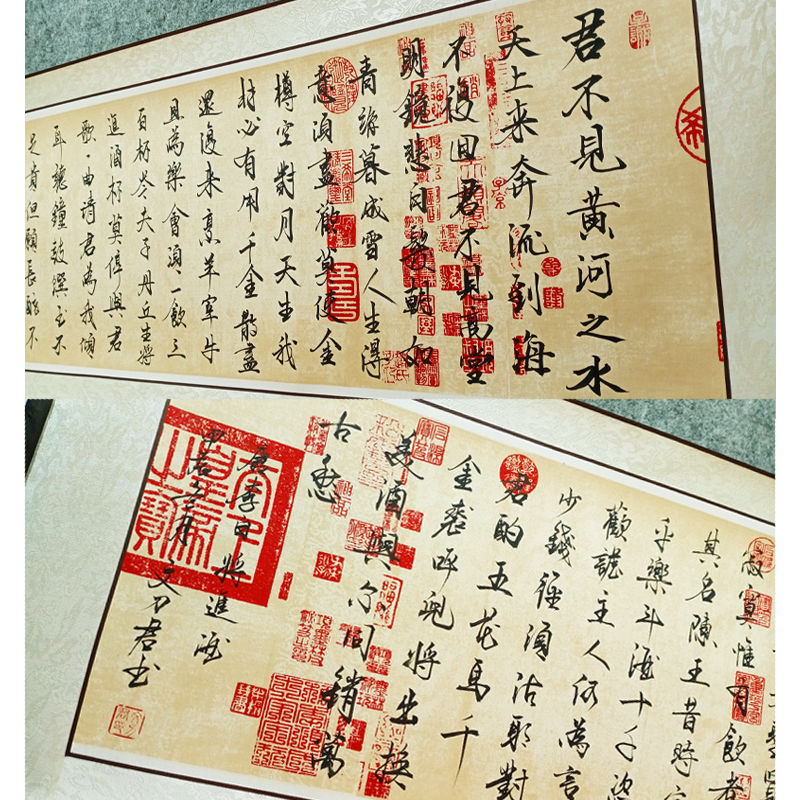 君不見黃河之水
天上来奔流到海
不復回君不見高堂
明鏡悲白髮朝如
青絲暮成雪人生得
意須盡歡莫使金
樽空對月天生我
材必有用千金散盡
還復来烹羊宰牛
且為樂會須一飲三
百杯岑夫子丹丘生將
進酒杯莫停與君
歌一曲請君為我傾
耳聽鐘鼓饌玉不
足貴但願長醉不
寂寞惟有飲者
其名陳王昔時宴
平樂斗酒十千恣
歡謔主人何為言
少錢徑須沽取對
君酌五花馬千
金裘呼兒將出換
美酒與爾同銷萬
古愁
唐李白將進酒
文刀君書